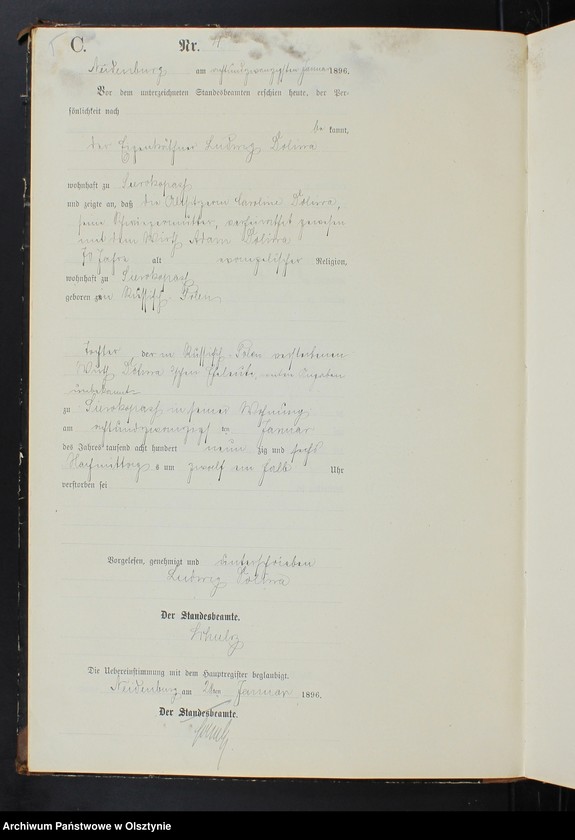 C. Nr.
Neidenburg am achtundzwanzigsten Januar 1896.
Vor dem unterzeichneten Standesbeamten erschien heute, der Per-
sönlichkeit nach
be kannt,
der Eigenkäthner Ludwig Doliwa
wohnhaft zu
und zeigte an, daß die Altsitzerin Caroline Doliwa,
seine Schwiegermutter, verheirathet gewesen
mit dem Wirth Adam Doliwa
Jahre alt evangelischer Religion,
wohnhaft zu
geboren zu in Russisch-Polen
Tochter der in Russisch-Polen verstorbenen
Wirth Eheleute,
unbekannt
zu in seiner Wohnung
am achtundzwanzigsten Januar
des Jahres tausend acht hundert neun zig und sechs
Nachmittags um zwölf ein halb Uhr
verstorben sei
Vorgelesen, genehmigt und unterschrieben
Ludwig Doliwa
Der Standesbeamte.
Schulz
Die Uebereinstimmung mit dem Hauptregister beglaubigt.
Neidenburg am 28ten Januar 1896.
Der Standesbeamte.
Schulz
Archiwum Państwowe w Olsztynie